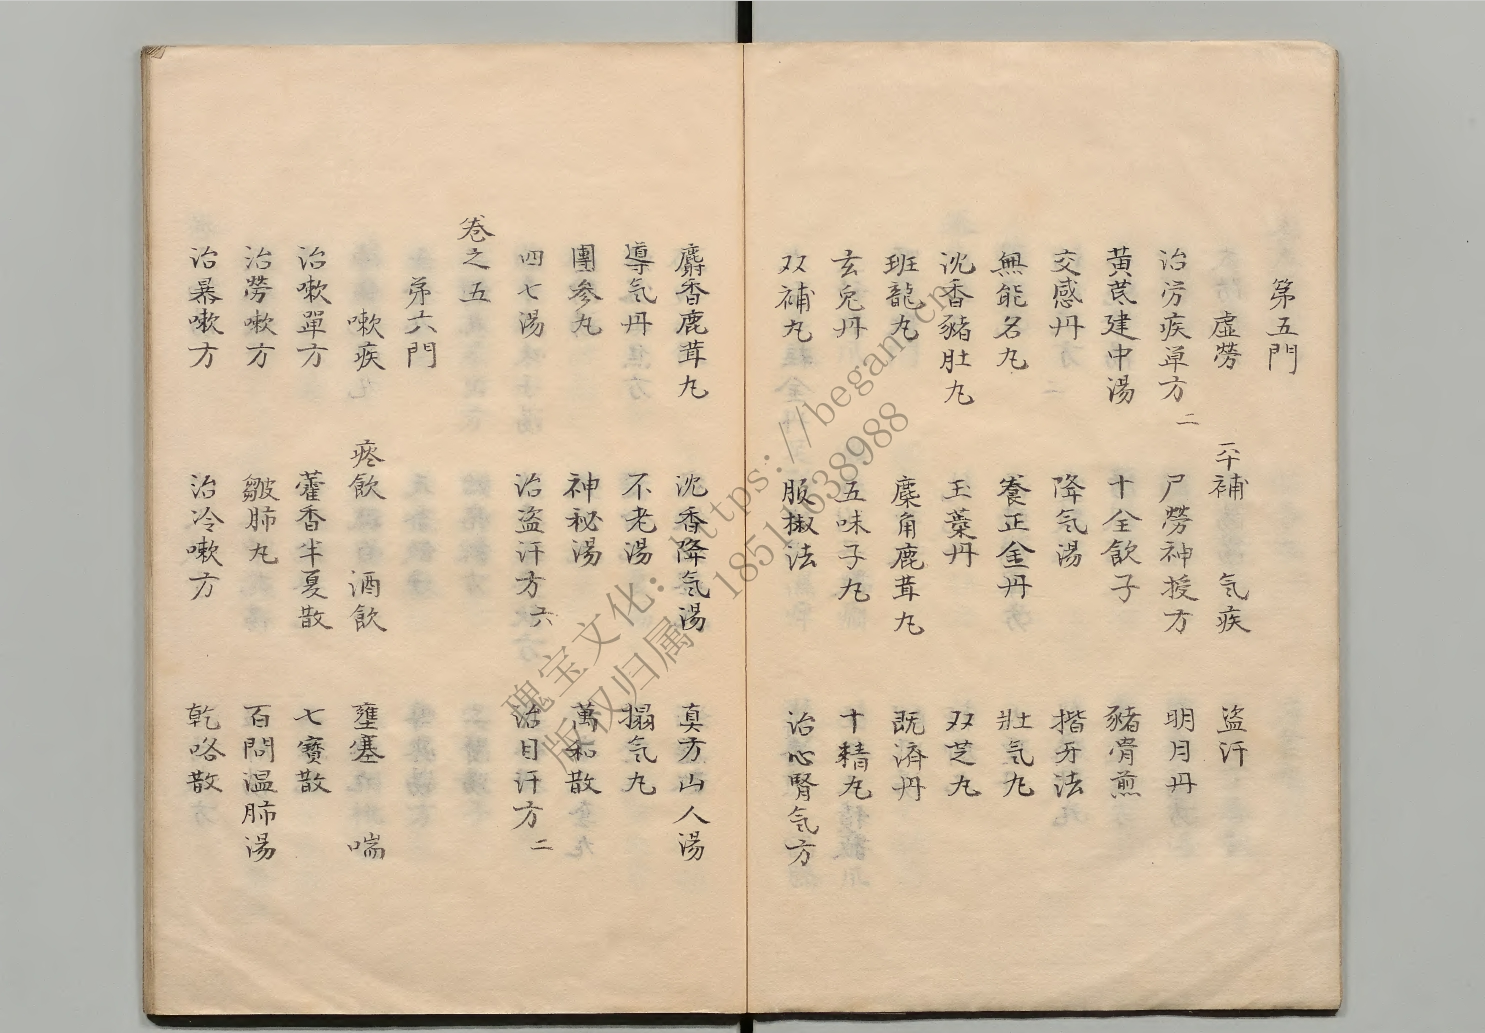 第五門
虛勞 平補 气疾 盗汗
治労疾单方二 尸勞神授方 明月丹
黄芪建中湯 十全飲子 豬骨煎
交感丹 降气湯 揩牙法
無能名丸 養正金丹 壯气丸
沈香豬肚丸 王葉丹 双芝丸
班龍丸 麋角鹿茸丸 既濟丹
玄兎丹 五味子丸 十精丸
双補丸 服椒法 治心腎气方
麝香鹿茸丸 沈香降气湯 真方山人湯
導气丹 不老湯 搨气丸
團参丸 神秘湯 萬和散
四七湯 治盗汗方六 治目汗方二
卷之五
苐六門
嗽疾 痰飲 酒飲 壅塞 喘
治嗽單方 藿香半夏散 七寳散
治勞嗽方 皺肺丸 百問温肺湯
治暴嗽方 治冷嗽方 乾咯散
瑰宝文化: https://began.cn
版权归属 18511638988